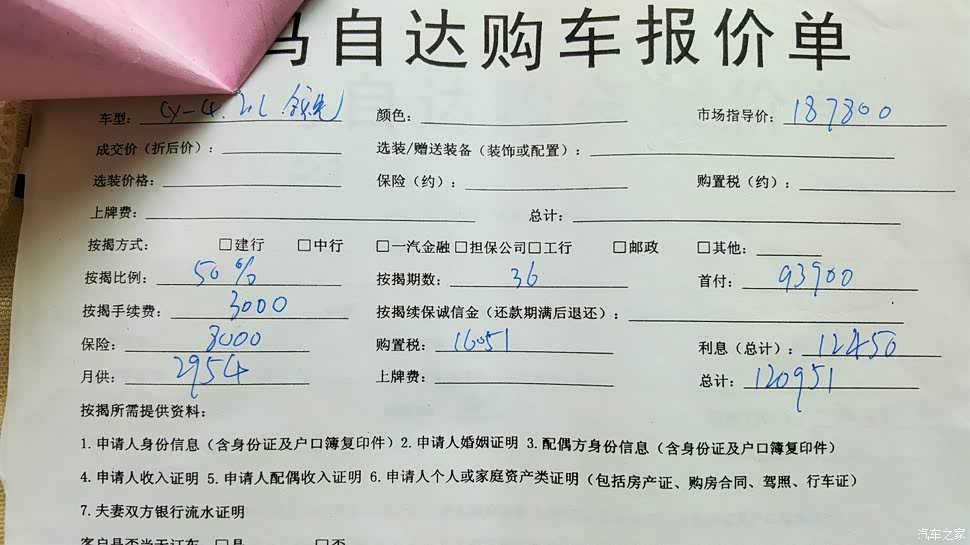 马自达购车报价单
车型: CX-4 2.0L 领先 颜色: 市场指导价: 187800
成交价(折后价): 选装/赠送装备(装饰或配置):
选装价格: 保险(约): 购置税(约):
上牌费: 总计:
按揭方式: □建行 □中行 □一汽金融 □担保公司 □工行 □邮政 □其他:
按揭比例: 50% 按揭期数: 36 首付: 93900
按揭手续费: 3000 按揭续保诚信金(还款期满后退还):
保险: 8000 购置税: 16051 利息(总计): 12450
月供: 2954 上牌费: 总计: 120951
按揭所需提供资料:
1.申请人身份信息(含身份证及户口簿复印件) 2.申请人婚姻证明 3.配偶方身份信息(含身份证及户口簿复印件)
4.申请人收入证明 5.申请人配偶收入证明 6.申请人个人或家庭资产类证明(包括房产证、购房合同、驾照、行车证)
7.夫妻双方银行流水证明
客户是否当天订车 □是 □否
汽车之家